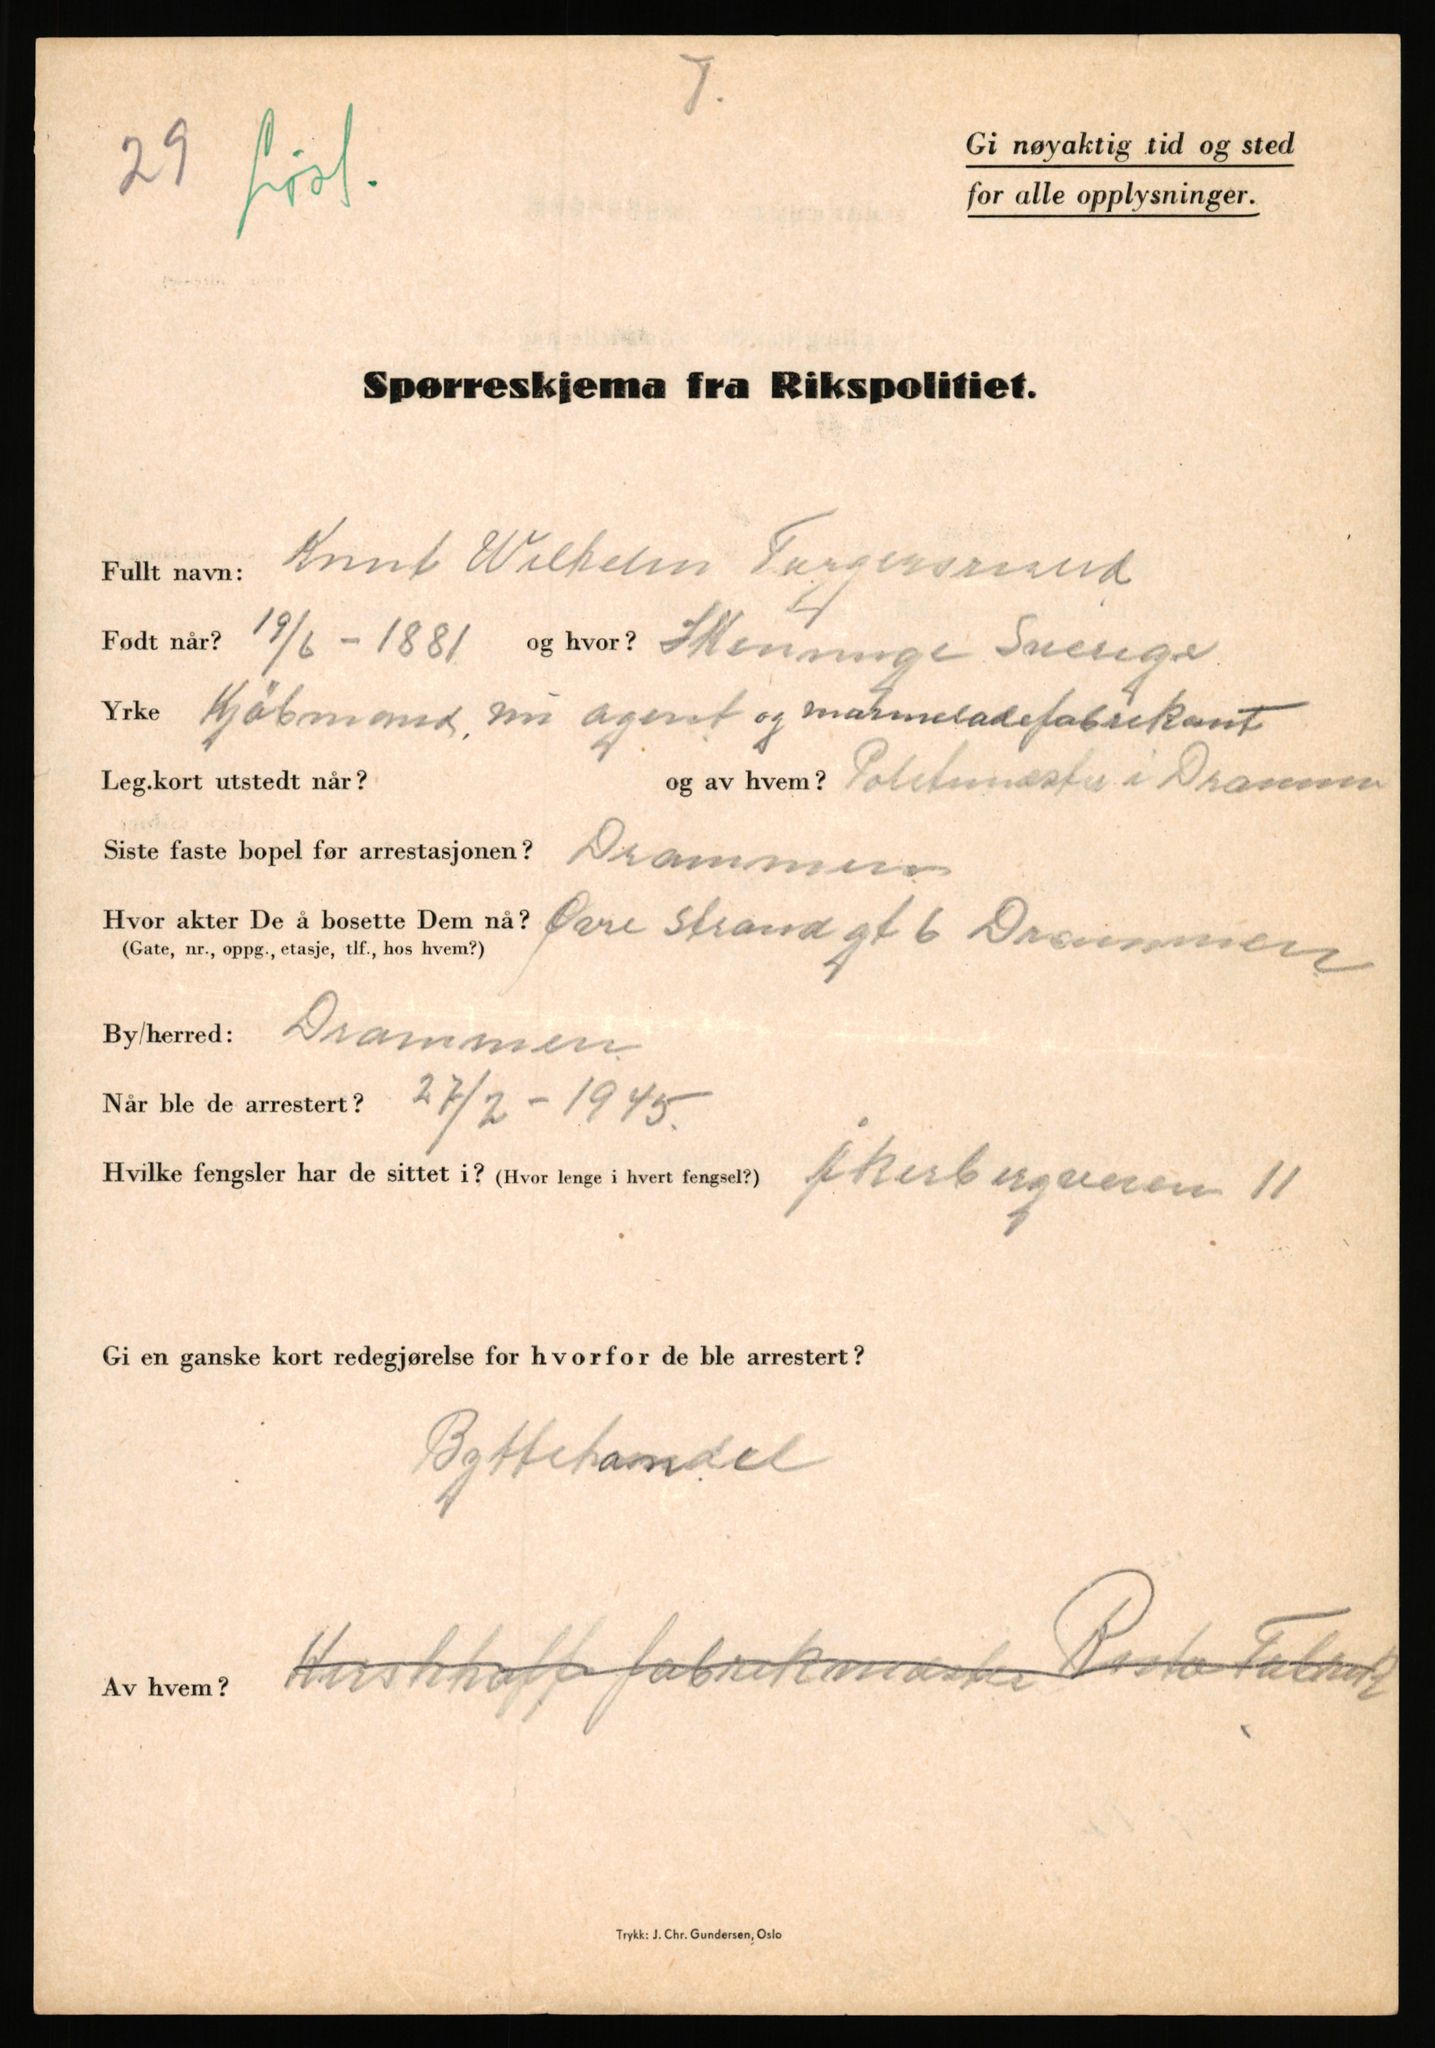 T.
29 Løsl.
Gi nøyaktig tid og sted
for alle opplysninger.
Spørreskjema fra Rikspolitiet.
Fullt navn: Knut Wilhelm
Født når? 19/6 - 1881 og hvor? Skenninge Sverige
Yrke Kjöbmand, nu agent og marmeladefabrikant
Leg.kort utstedt når? og av hvem? Politimester i Drammen
Siste faste bopel før arrestasjonen? Drammen
Hvor akter De å bosette Dem nå? Øvre Strandgt 6 Drammen
(Gate, nr., oppg., etasje, tlf., hos hvem?)
By/herred: Drammen
Når ble de arrestert? 27/2 - 1945.
Hvilke fengsler har de sittet i? (Hvor lenge i hvert fengsel?) Åkerbergveien 11
Gi en ganske kort redegjørelse for hvorfor de ble arrestert?
Byttehandel
Av hvem? fabrikmester
Trykk: J. Chr. Gundersen, Oslo